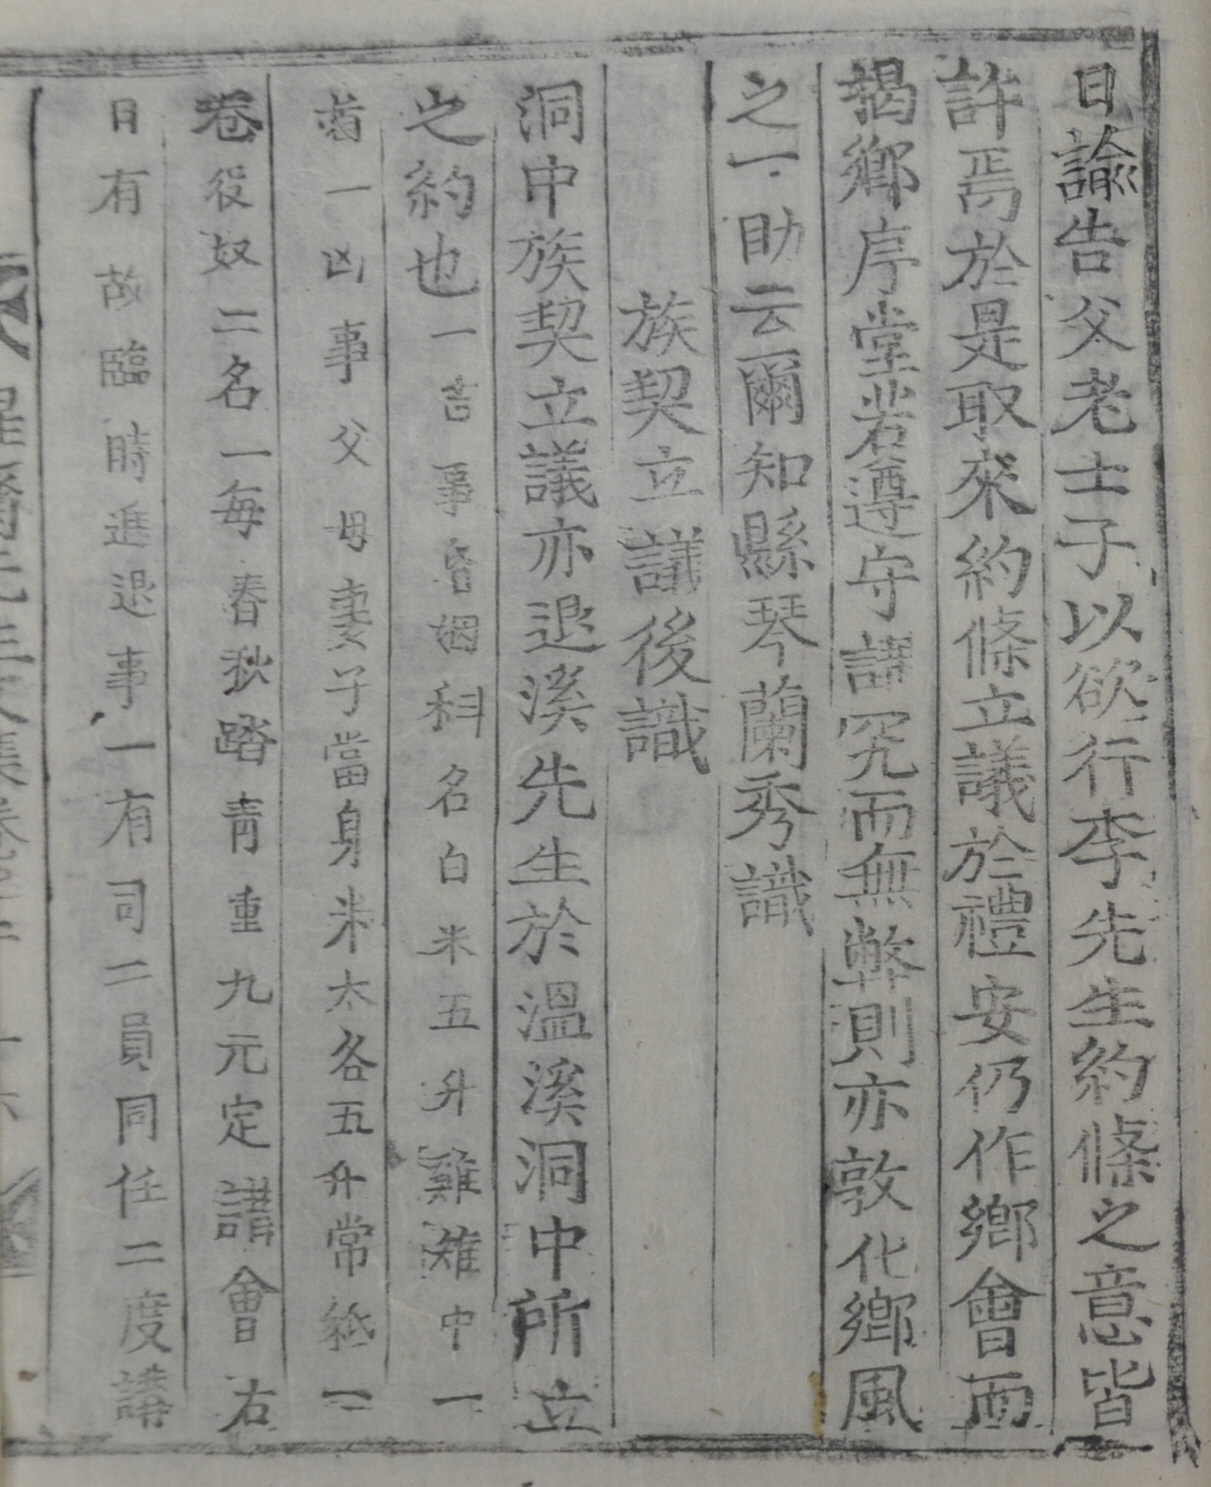 日諭告父老士子以欲行李先生約條之意皆
許焉於是取來約條立議於禮安仍作鄉會而
揭鄉序堂若遵守講究而無弊則亦敦化鄉風
之一助云爾知縣琴蘭秀識
族契立議後識
洞中族契立議亦退溪先生於溫溪洞中所立
之約也一吉事昏姻科名白米五升雞雉中一
首一凶事父母妻子當身米太各五升常紙一
卷役奴二名一每春秋踏靑重九元定講會右
日有故臨時進退事一有司二員同任二度講
先生文集卷